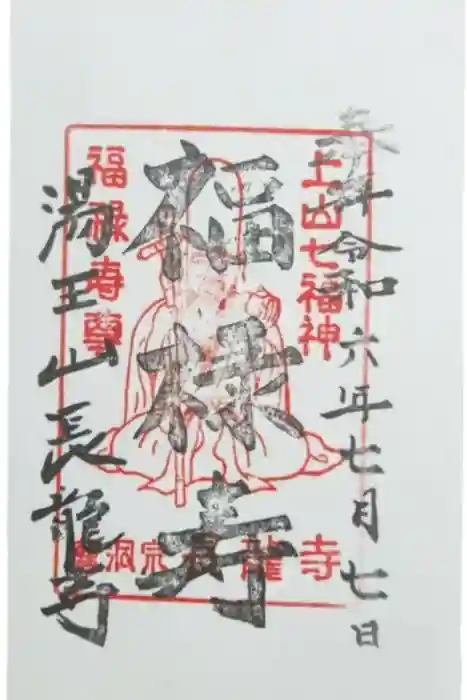 奉拝令和六年七月七日
上山七福神
福禄寿
福禄寿尊
湯王山長龍寺
曹洞宗長龍寺